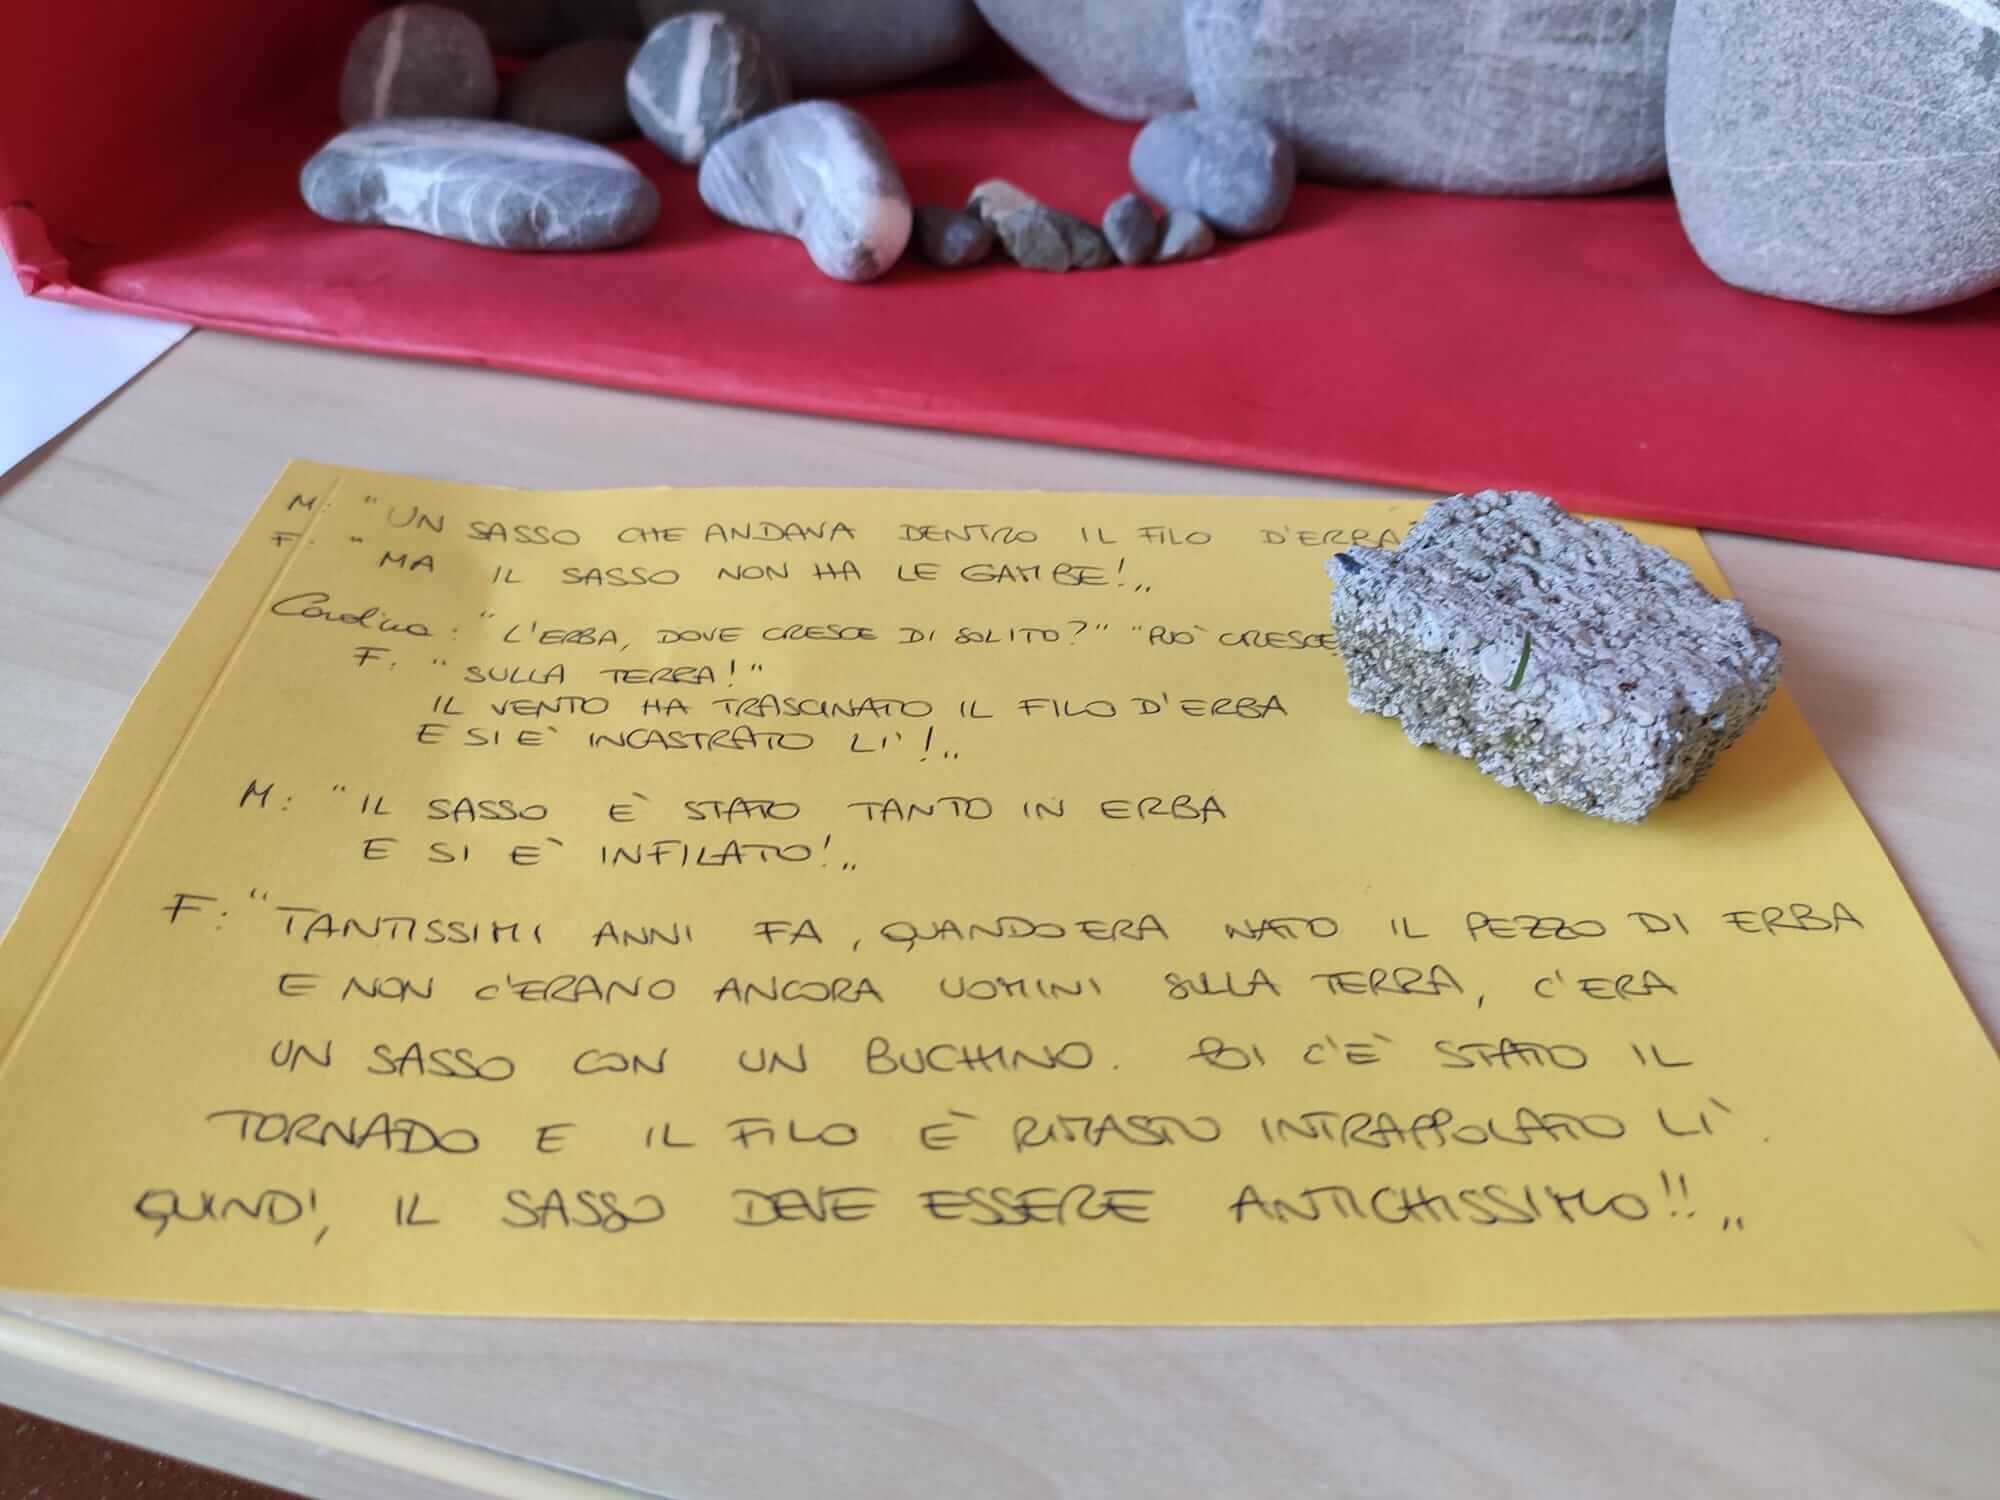 M: "UN SASSO CHE ANDAVA DENTRO IL FILO D'ERBA
F: "MA IL SASSO NON HA LE GAMBE!"
Carolina: "L'ERBA, DOVE CRESCE DI SOLITO?" "PUÒ CRESCE
F: "SULLA TERRA!"
IL VENTO HA TRASCINATO IL FILO D'ERBA
E SI È INCASTRATO LÌ!"
M: "IL SASSO È STATO TANTO IN ERBA
E SI È INFILATO!"
F: "TANTISSIMI ANNI FA, QUANDO ERA NATO IL PEZZO DI ERBA
E NON C'ERANO ANCORA UOMINI SULLA TERRA, C'ERA
UN SASSO CON UN BUCHINO. POI C'È STATO IL
TORNADO E IL FILO È RIMASTO INTRAPPOLATO LÌ.
QUINDI, IL SASSO DEVE ESSERE ANTICHISSIMO!!"